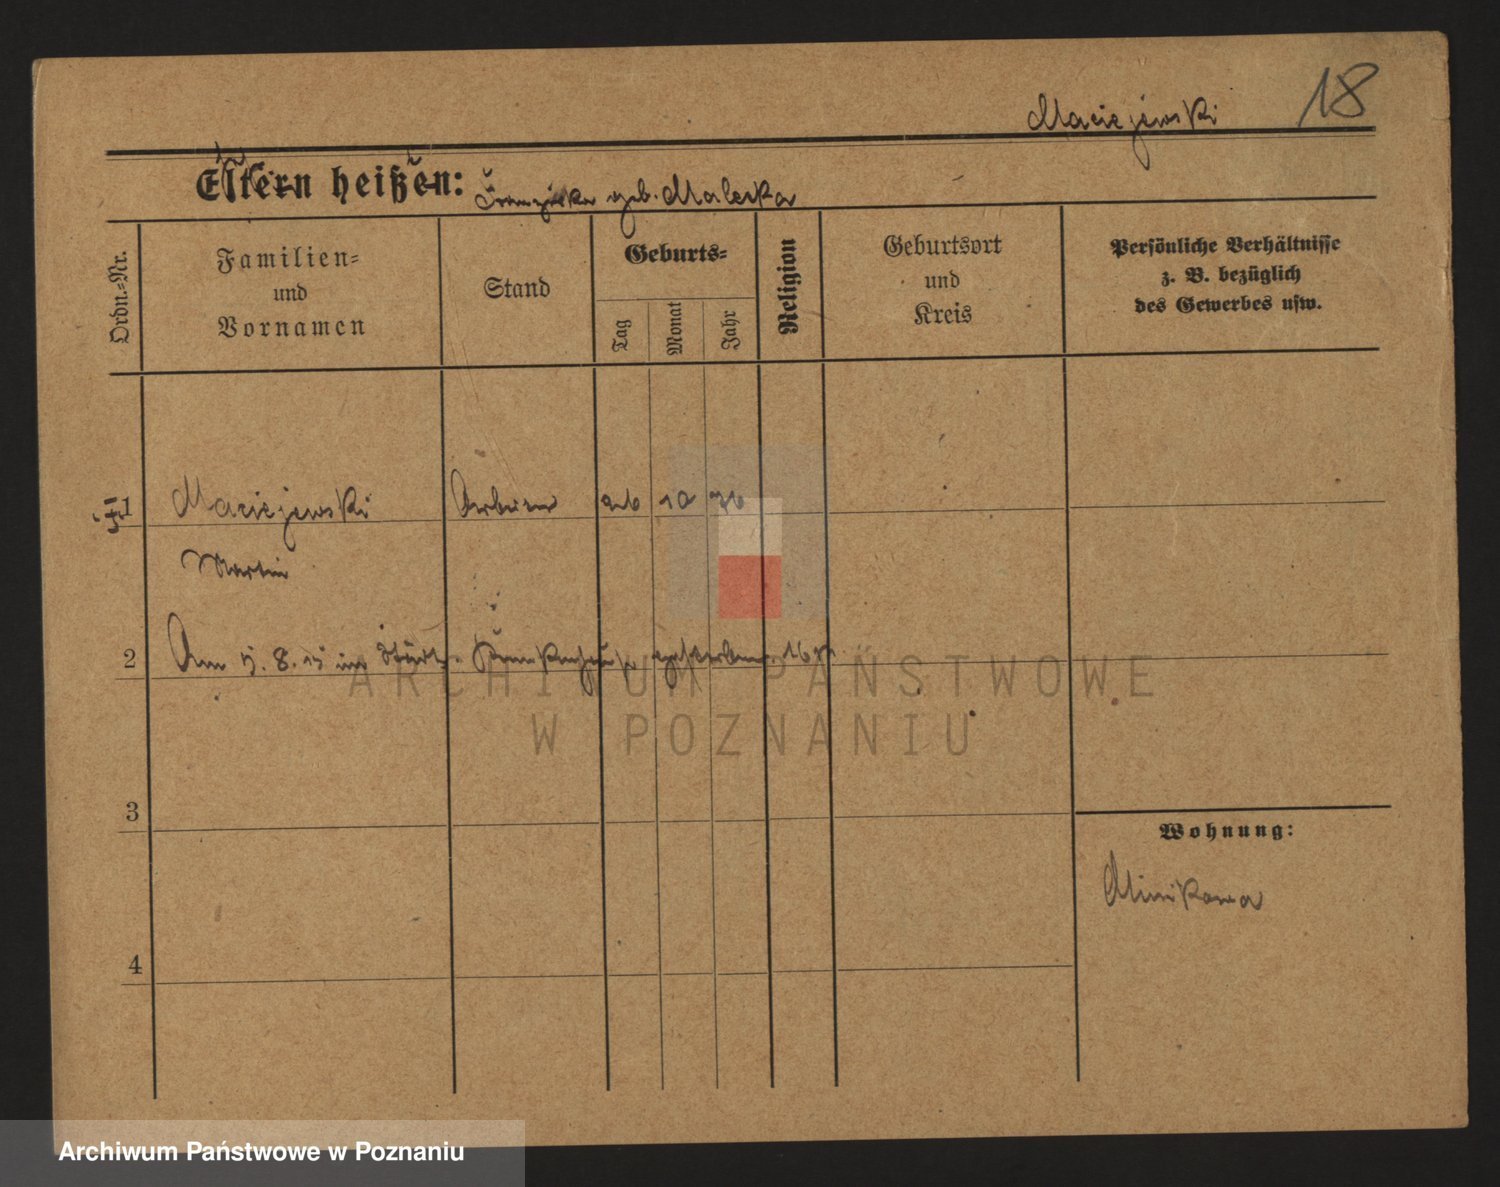 Maciejewski 18
Eltern heißen: Franziska geb. Maleska
Ordn.-Nr.
Familien-
und
Vornamen
Stand
Geburts-
Tag
Monat
Jahr
Religion
Geburtsort
und
Kreis
Persönliche Verhältnisse
z. B. bezüglich
des Gewerbes usw.
1 Maciejewski Arbeiter 26 10 76
Martin
2 Am 5. 8. 15 im Städt. Krankenhaus gestorben
ARCHIWUM PAŃSTWOWE
W POZNANIU
3
Wohnung:
Minikowo
4
Archiwum Państwowe w Poznaniu